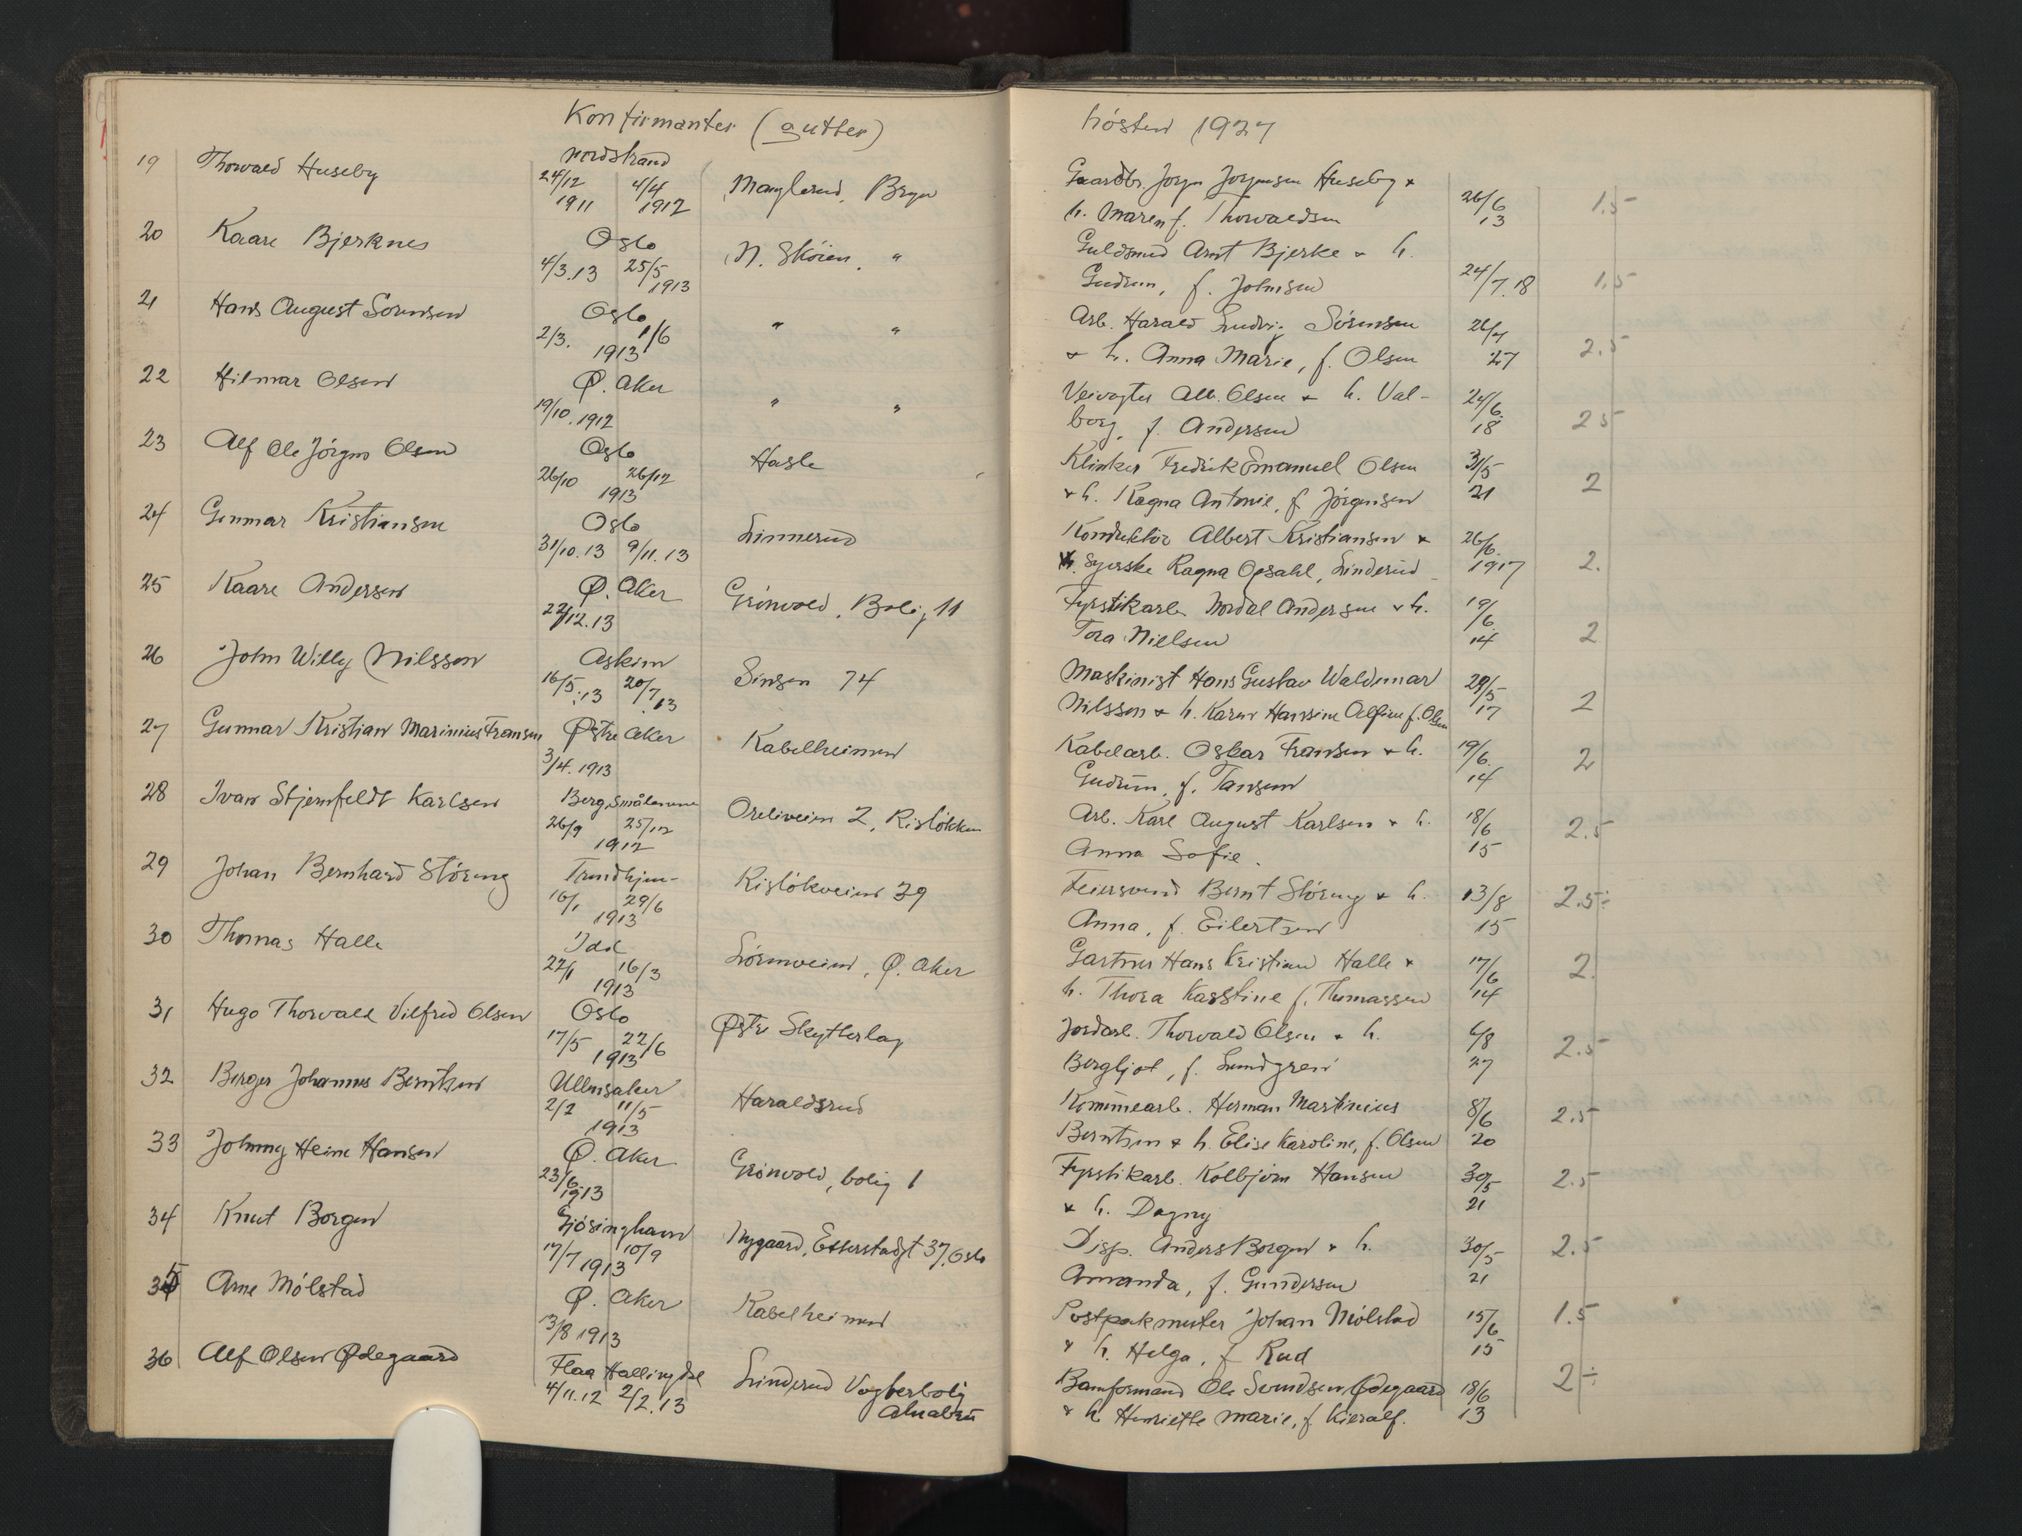 Konfirmanter (gutter) høsten 1927
19 Thorvald Huseby Nordstrand Manglerud, Bryn Gaardbr. Jørgen Jørgensen Huseby + 26/6 1.5
24/12 1911 4/4 1912 h. Maren f. Thorvaldsen 13
20 Kaare Bjerknes Oslo N. Skøien, " Guldsmed Arnt Bjerke + h. 24/7.18 1.5
4/3.13 25/5 1913 Gudrun, f. Johnsen
21 Hans August Sørensen Oslo " " Arb. Harald Ludvig Sørensen 2.5
2/3. 1/6 1913 + h. Anna Marie, f. Olsen 27
22 Hilmar Olsen Ø. Aker " " Veivogter Alb. Olsen + h. Val- 24/6. 25
19/10.1912 borg, f. Andersen 18
23 Alf Ole Jörgen Olsen Oslo Hasle Klinker Fredrik Emanuel Olsen 31/5 2
26/10 26/12 1913 + h. Ragna Antonie, f. Jörgensen 21
24 Gunnar Kristiansen Oslo Linnerud Konduktör Albert Kristiansen + 26/6. 2.
31/10.13 9/11.13 Syerske Ragna Opsahl, Linderud 1917
25 Kaare Andersen Ø. Aker Grönvold, Bolig 11 Fyrstikarb. Nordal Andersen + h. 19/6. 2
/12.13 Tora Nielsen 14
26 John Willy Nilsson Askim Sinsen 74 Maskinist Hans Gustav Waldemar 29/5 2
16/5.13 20/7.13 Nilsson + h. Karen Hansine Alfine f. Olsen 17
27 Gunnar Kristian Marinius Fransen Østre Aker Kabelheimen Kabelarb. Oskar Fransen + h. 19/6. 2
3/4.1913 Gudrun, f. Jansen 14
28 Ivar Stjernfeldt Karlsen Berg, Smålenene Oreliveien 2, Risløkken Arb. Karl August Karlsen + h. 18/6 2.5
26/9 25/12 1912 Anna Sofie. 15
29 Johan Bernhard Støreng Trondhjem- Risløkveien 39 Feiersvend Bernt Støreng + h. 13/8 2.5÷
16/1 29/6 1913 Anna, f. Eilertsen 15
30 Thomas Halle Idd Lørenveien, Ø. Aker Gartner Hans Kristian Halle + 17/6 2
22/1 16/3 1913 h. Thora Kasstine f. Thomassen 14
31 Hugo Thorvald Vilfred Olsen Oslo Østre Skytterlag Jordarb. Thorvald Olsen + h. 6/8 2.5
17/5 22/6 1913 Bergljot, f. Lundgren 27
32 Berger Johannes Berntsen Ullensaker Haraldsrud Kommearb. Herman Martinius 8/6 2.5
2/2 11/5 1913 Berntsen + h. Elise Karoline, f. Olsen 20
33 Johnny Heine Hansen Ø. Aker Grönvold, bolig 1 Fyrstikarb. Kolbjørn Hansen 30/5 2.5
23/6. 1913 + h. Dagny 21
34 Knut Borgen Gjøsinghavn Nygaard, Etterstadgt 37, Oslo Disp. Anders Borgen + h. 30/5 2.5
17/7 10/9 1913 Amanda, f. Gundersen 21
35 Arne Mølstad Ø. Aker Kabelheimen Postpakmester Johan Mølstad 15/6 1.5
13/8 1913 + h. Helga, f. Rud 15
36 Alf Olsen Ødegaard Flaa Hallingdal Linderud Vogterbolig Banformand Ole Svendsen Ødegaard 18/6 2÷
4/11.12 2/2.13 Alnabru + h. Henriette Marie, f. Kieralf. 13